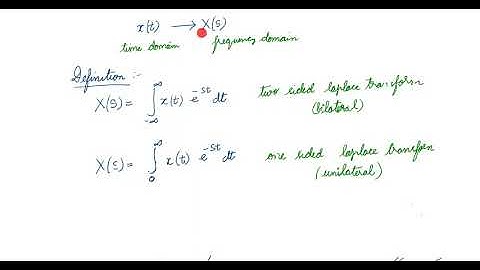 x(t) ⟶ X(s)
time domain frequency domain
Definition :-
X(s) = ∫_{-∞}^{∞} x(t) e^{-st} dt two sided laplace transform
(bilateral)
X(s) = ∫_{0}^{∞} x(t) e^{-st} dt one sided laplace transform
(unilateral)